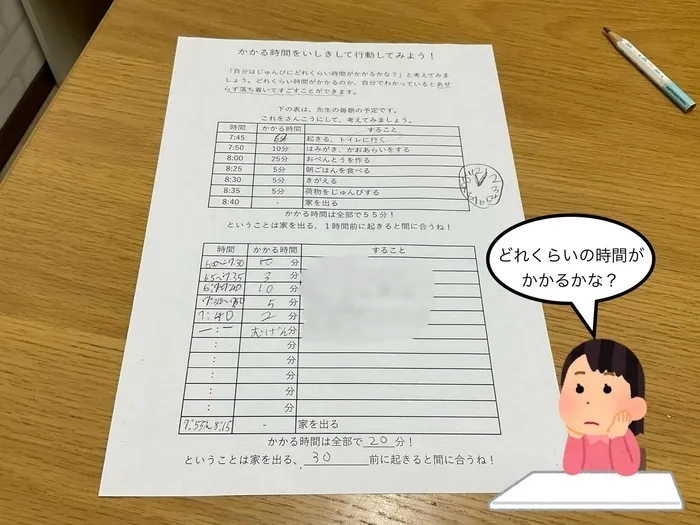 かかる時間をいしきして行動してみよう！
「自分はじゅんびにどれくらい時間がかかるかな？」と考えてみま
しょう。どれくらい時間がかかるのか、自分でわかっているとあせ
らず落ち着いてすごすことができます。
下の表は、先生の毎朝の予定です。
これをさんこうにして、考えてみましょう。
時間 かかる時間 すること
7:45 起きる、トイレに行く
7:50 10分 はみがき、かおあらいをする
8:00 25分 おべんとうを作る
8:25 5分 朝ごはんを食べる
8:30 5分 きがえる
8:35 5分 荷物をじゅんびする
8:40 - 家を出る
かかる時間は全部で５５分！
ということは家を出る、１時間前に起きると間に合うね！
時間 かかる時間 すること
分
3 分
10 分
5 分
7:40 2 分
むげん分
: 分
: 分
: 分
: 分
: 分
- 家を出る
かかる時間は全部で 20 分！
ということは家を出る、 30 前に起きると間に合うね！
どれくらいの時間が
かかるかな？